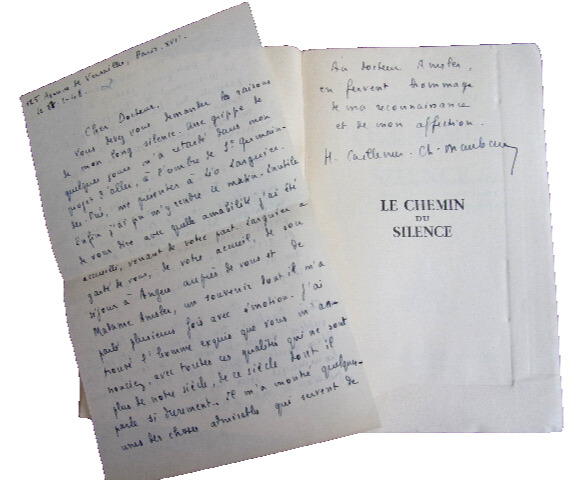 125 Avenue de Versailles, Paris XVIe
Cher Docteur,
Vous devez vous demander les raisons
de mon long silence. Une grippe de
quelques jours m'a retardé dans mon
projet d'aller, à l'ombre de St Germain-
des Prés, me présenter à
Enfin j'ai pu m'y rendre ce matin. Inutile
de vous dire avec quelle amabilité j'ai été
accueillie, venant de votre part. a
gardé de vous, de votre accueil, de son
séjour à Angers auprès de vous et de
Madame Amsler, un souvenir dont il m'a
parlé plusieurs fois avec émotion. J'ai
trouvé l'homme exquis que vous m'an-
nonciez, avec toutes ces qualités qui ne sont
plus de notre siècle, de ce siècle dont il
parle si durement. Il m'a montré quelques-
unes des choses admirables qui servent de
Au Docteur Amsler,
en fervent hommage
de ma reconnaissance
et de mon affection.
LE CHEMIN
DU
SILENCE